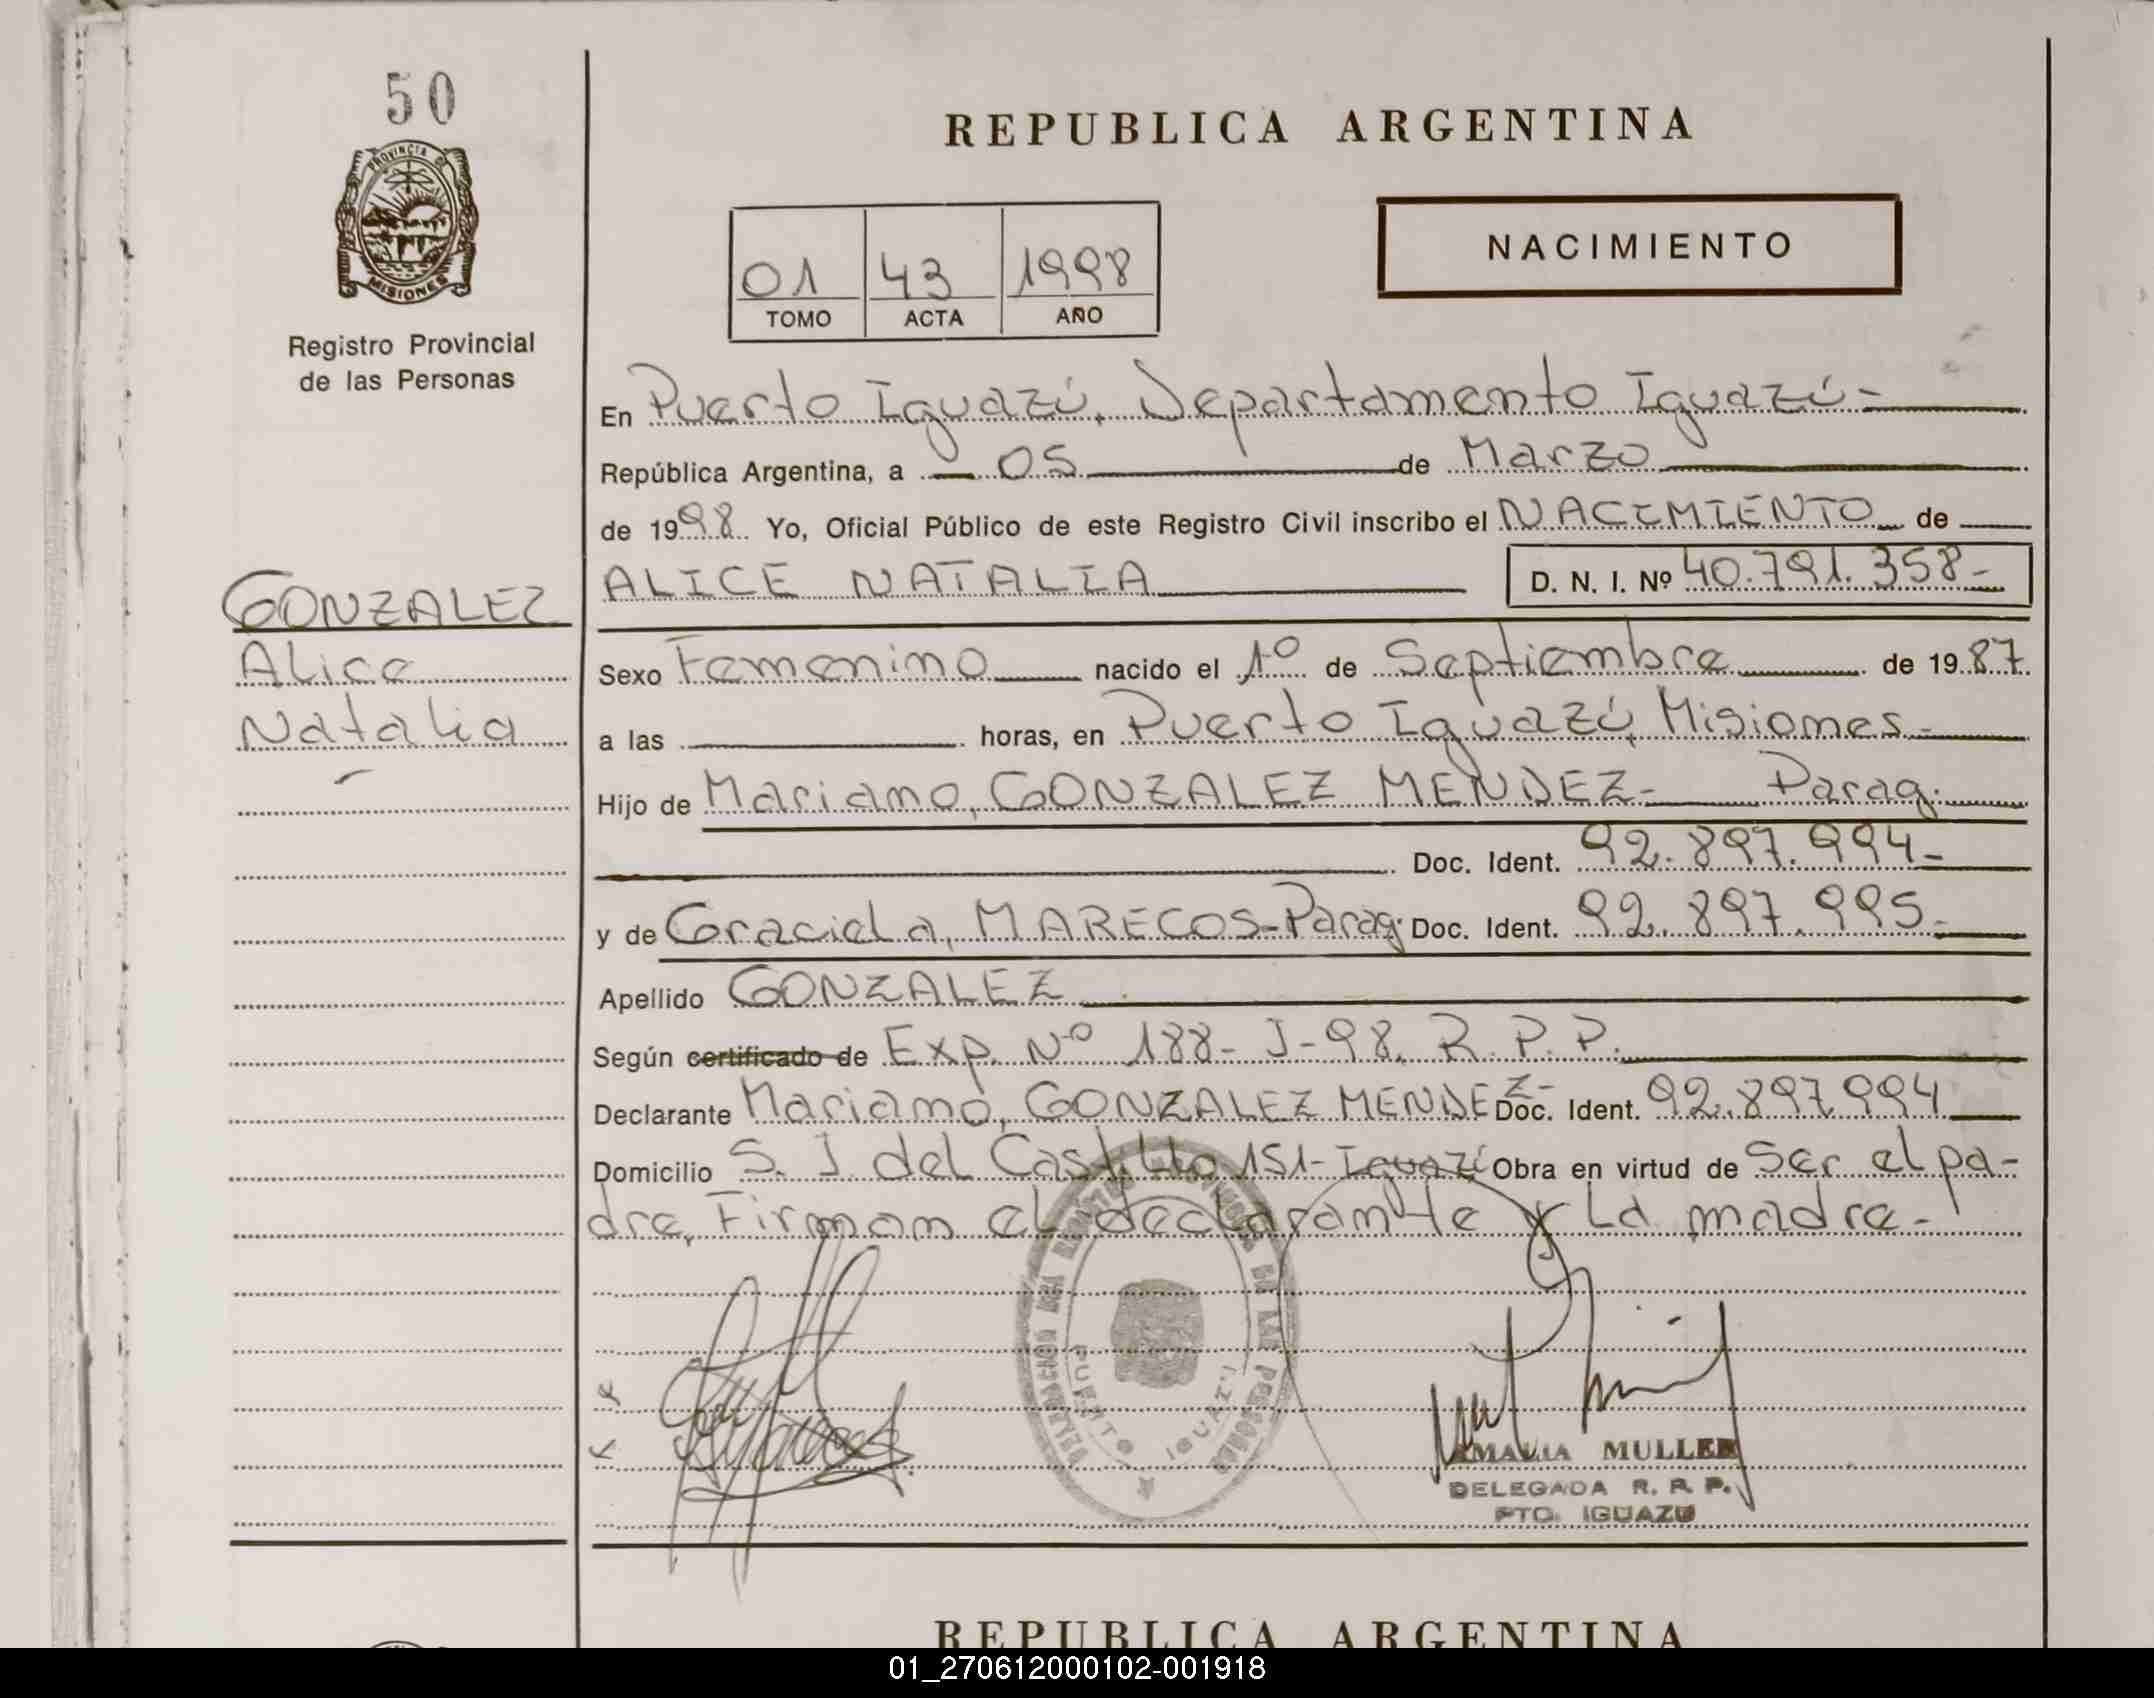 50
PROVINCIA DE
MISIONES
Registro Provincial
de las Personas
REPUBLICA ARGENTINA
01 43 1998
TOMO ACTA AÑO
NACIMIENTO
En Puerto Iguazú, Departamento Iguazú-
República Argentina, a 05 de Marzo
de 1998 Yo, Oficial Público de este Registro Civil inscribo el NACIMIENTO de
GONZALEZ
Alice
Natalia
ALICE NATALIA D. N. I. Nº 40.791.358-
Sexo Femenino nacido el 1º de Septiembre de 1987
a las horas, en Puerto Iguazú, Misiones-
Hijo de Mariano, GONZALEZ MENDEZ- Parag.
Doc. Ident. 92.897.994-
y de Graciela, MARECOS-Parag. Doc. Ident. 92.897.995-
Apellido GONZALEZ
Según certificado de Exp. Nº 188-J-98, R.P.P.
Declarante Mariano, GONZALEZ MENDEZ- Doc. Ident. 92.897.994
Domicilio S. J. del Castillo 151-Iguazú Obra en virtud de Ser el pa-
dre, Firman el declarante y La madre-
REGISTRO PROVINCIAL DE LAS PERSONAS
PUERTO IGUAZU
AMALIA MULLER
DELEGADA R. P. P.
PTO. IGUAZU
REPUBLICA ARGENTINA
01_270612000102-001918